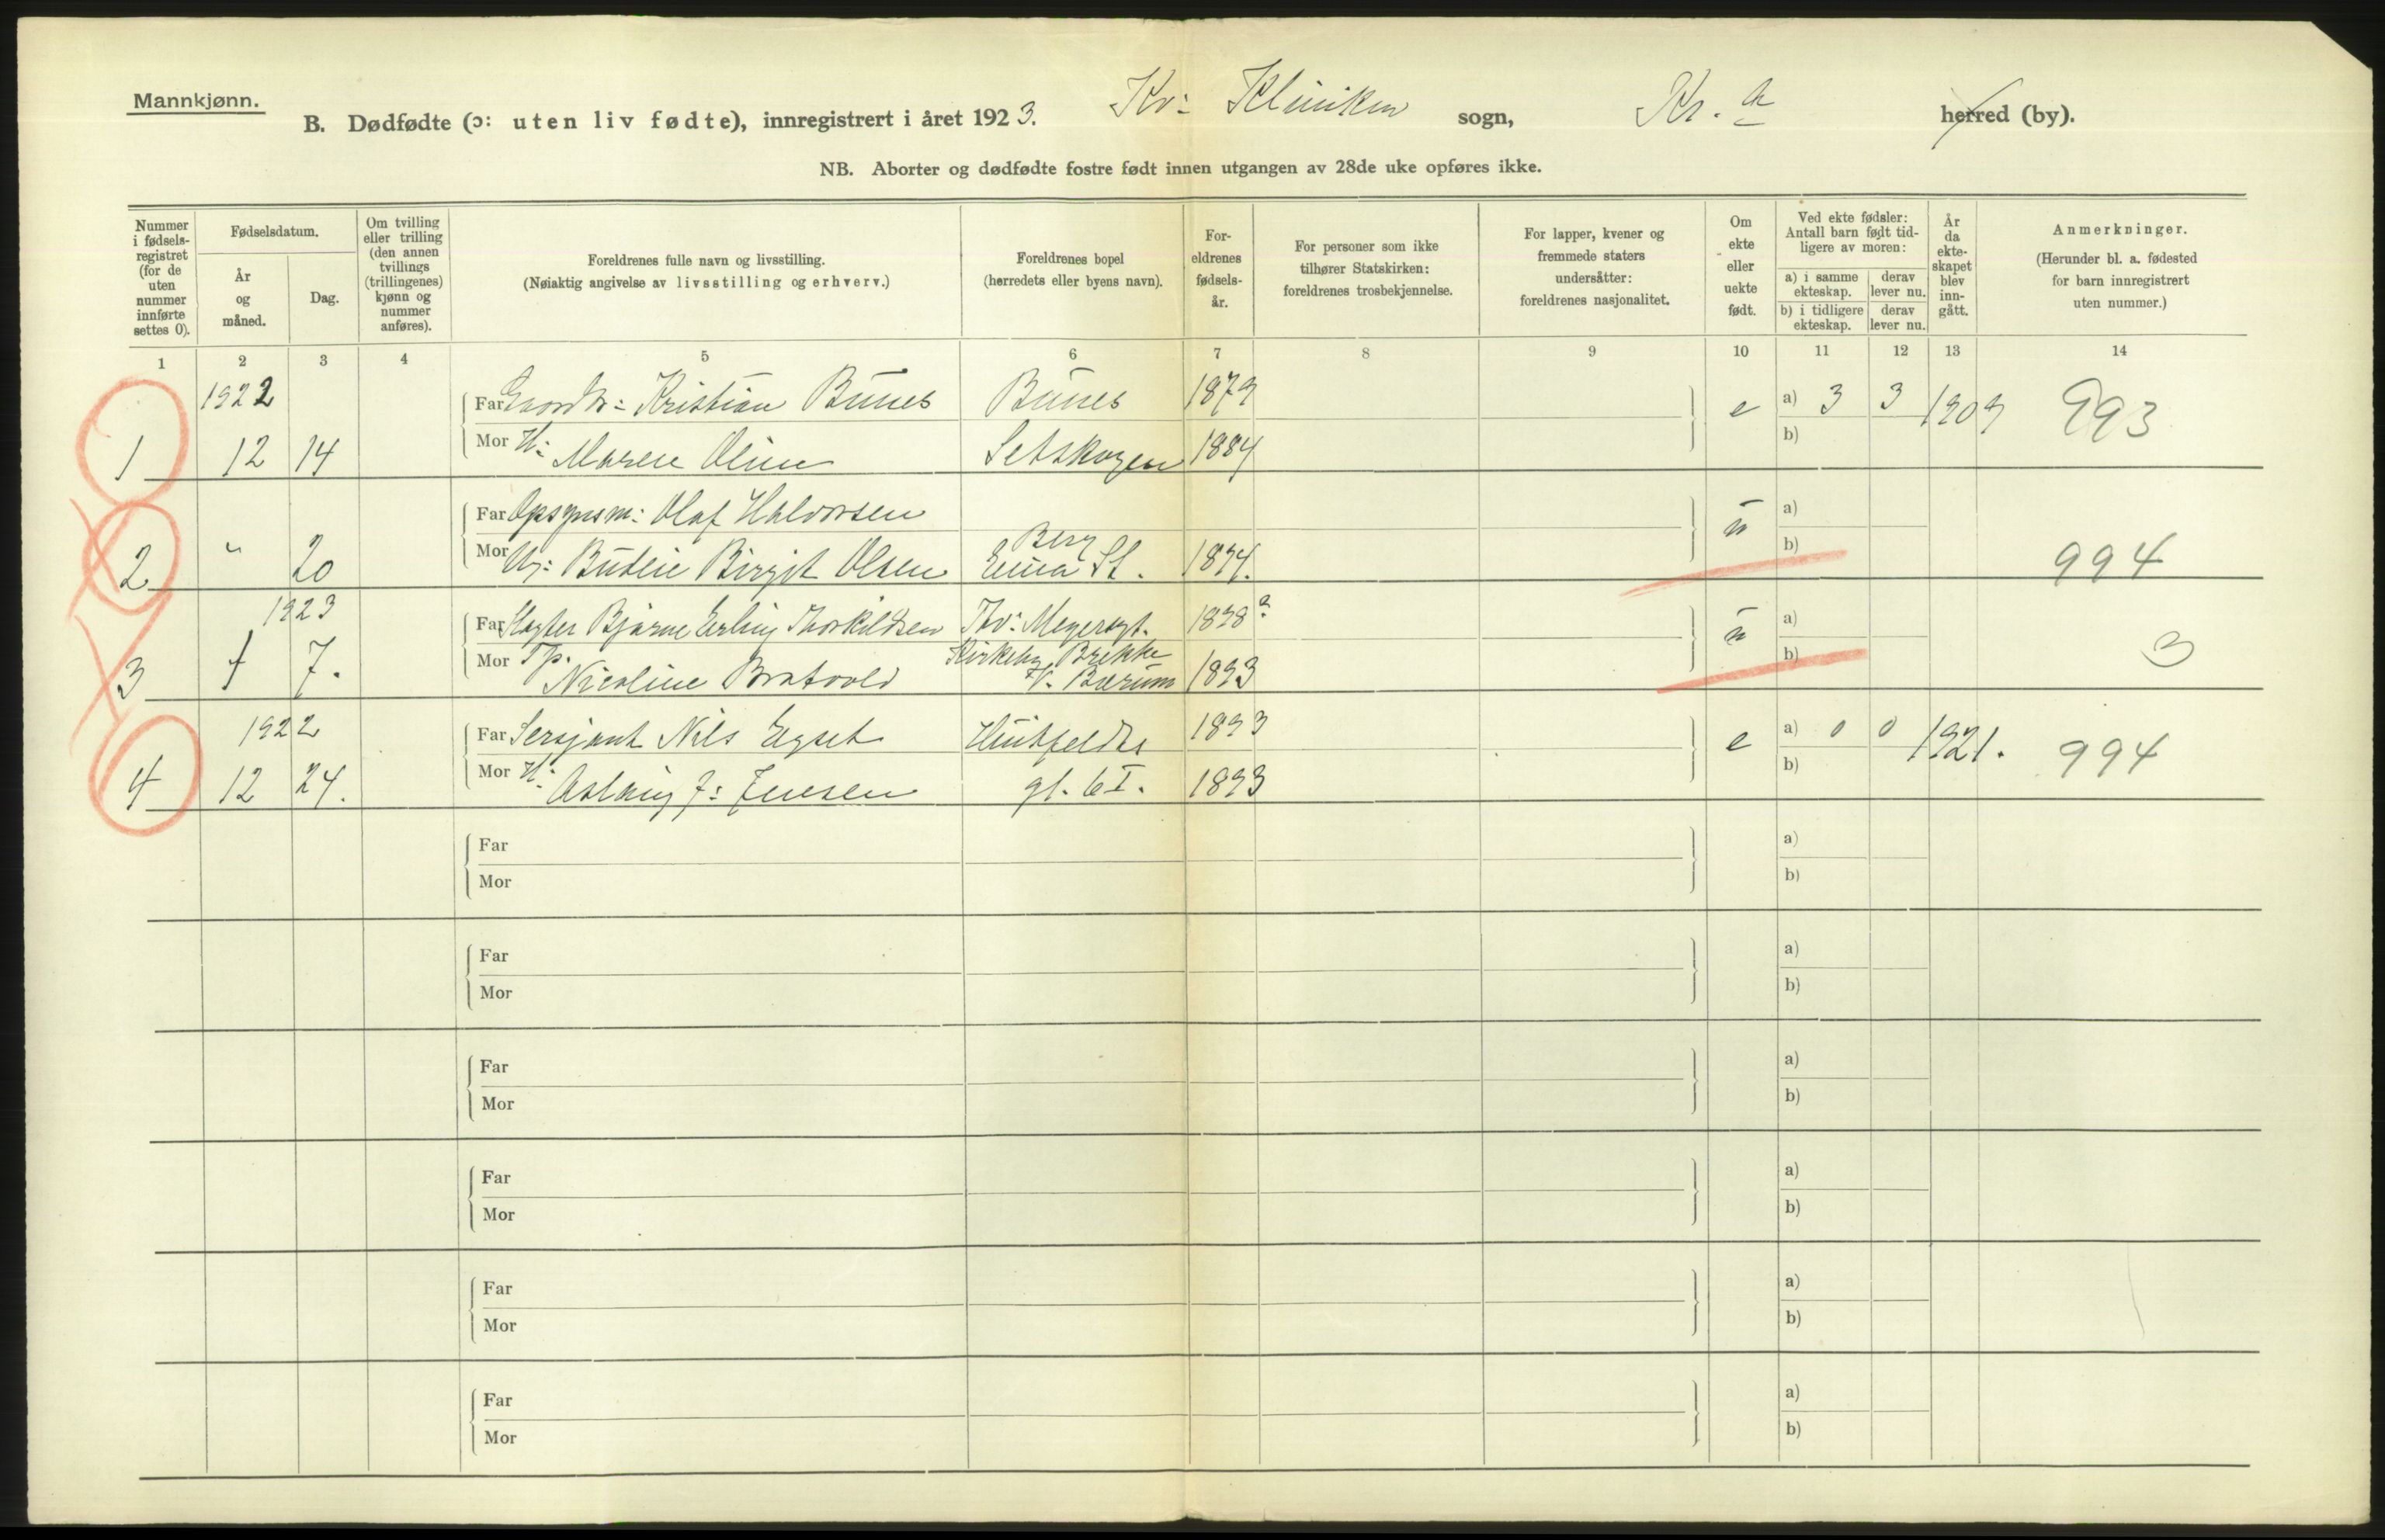 Mannkjønn.
B. Dødfødte (ɔ: uten liv fødte), innregistrert i året 1923. Kv: Kliniken sogn, Kr.a herred (by).
NB. Aborter og dødfødte fostre født innen utgangen av 28de uke opføres ikke.
Nummer i fødsels-registret (for de uten nummer innførte settes 0).
Fødselsdatum.
År og måned.
Dag.
Om tvilling eller trilling (den annen tvillings (trillingenes) kjønn og nummer anføres).
Foreldrenes fulle navn og livsstilling.
(Nøiaktig angivelse av livsstilling og erhverv.)
Foreldrenes bopel
(herredets eller byens navn).
For-eldrenes fødsels-år.
For personer som ikke tilhører Statskirken: foreldrenes trosbekjennelse.
For lapper, kvener og fremmede staters undersåtter: foreldrenes nasjonalitet.
Om ekte eller uekte født.
Ved ekte fødsler: Antall barn født tid-ligere av moren:
a) i samme ekteskap. derav lever nu.
b) i tidligere ekteskap. derav lever nu.
År da ekte-skapet blev inn-gått.
Anmerkninger.
(Herunder bl. a. fødested for barn innregistrert uten nummer.)
1 2 3 4 5 6 7 8 9 10 11 12 13 14
1922
Far Gaardbr: Kristian Bunes Bunes 1879 e a) 3 3 1909 993
1 12 14 Mor H: Maren Oline Setskogen 1884 b)
Far Opsynsm: Olaf Halvorsen ū a)
2 " 20 Mor Ug: Budeie Birgit Olsen Berg St. 1894. b) 994
1923
Far Slagter Bjarne Erling Thorkildsen Thv: Meyersgt. 1898? ū a)
3 1 7. Mor Tp. Nicoline Bratvold Kirkeby Brekke V. Bærum 1893 b) 3
1922
Far Sersjant Nils Egset Huitfeldts 1893 e a) 0 0 1921. 994
4 12 24. Mor H: Aslaug f: Jensen gt. 6 I. 1893 b)
Far a)
Mor b)
Far a)
Mor b)
Far a)
Mor b)
Far a)
Mor b)
Far a)
Mor b)
Far a)
Mor b)